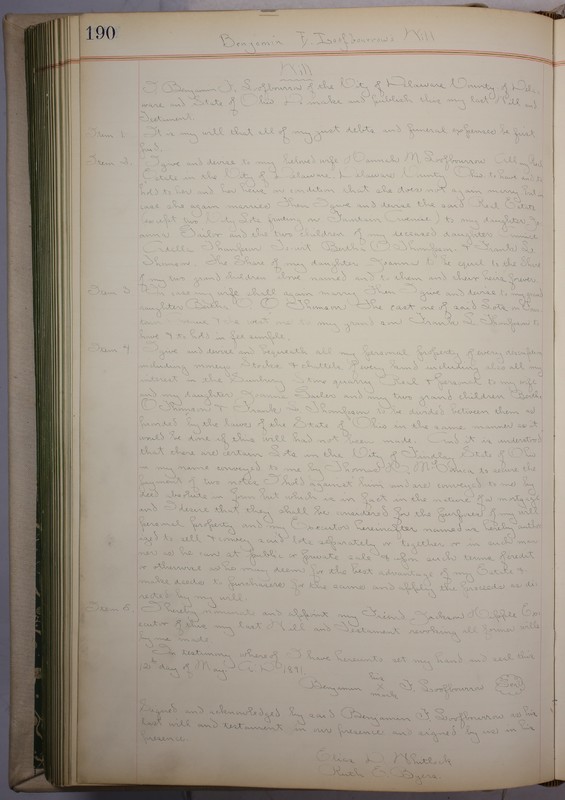 190
Benjamin F. Loofbourrow Will
Will
I Benjamin F. Loofbourrow of the City of Delaware County of Dela-
ware and State of Ohio do make and publish this my last Will and
Testament
Item 1. It is my will that all of my just debts and funeral expenses be first
paid.
Item 2. I give and devise to my beloved wife Hannah M Loofbourrow all my Real
Estate in the City of Delaware, Delaware County Ohio to have and to
hold to her and her heirs on condition that she does not again marry but in
case she again marries then I give and devise the said Real Estate
(except two lots fronting on Avenue) to my daughter
and the two children of my deceased daughter
Thompson To wit Bertha O Thompson & Frank L.
Thompson. The share of my daughter to be equal to the share
of my two grand children above named and to them and their heirs forever
Item 3. In case my wife shall again marry then I give and devise to my grand
daughter Bertha O. Thompson the east one of said lots on
Avenue & the west one to my grand son Frank L Thompson to
have & to hold in fee simple.
Item 4. I give and devise and bequeath all my personal property of every description
including moneys Stocks & chattels of every kind including also all my
interest in the Sunbury Stone quarry Real & personal to my wife
and my daughter and my two grand children Bertha
O Thompson & Frank L Thompson to be divided between them as
provided by the laws of the State of Ohio in the same manner as it
would be done if this Will had not been made. And it is understood
that there are certain lots in the City of Findlay State of Ohio
in my name conveyed to me by Thomas to secure the
payment of two notes I hold against him and are conveyed to me by
deed absolute in form but which is in fact in the nature of a mortgage
and I desire that they shall be considered for the purposes of my will
personal property and my Executor hereinafter named is hereby author-
ized to sell & convey said lots separately or together or in such man-
ner as he can at public or private sale & upon such terms of credit
or otherwise as he may deem for the best advantage of my Estate &
make deeds to purchasers for the same and apply the proceeds as di-
rected by my will.
Item 5. I hereby nominate and appoint my Friend Jackson Hipple Exe-
cutor of this my last Will and Testament revoking all former wills
by me made
In testimony whereof I have hereunto set my hand and seal this
12th day of May A.D. 1891
Benjamin his x mark F. Loofbourrow Seal
Signed and acknowledged by said Benjamin F Loofbourrow as his
last will and testament in our presence and signed by us in his
presence.
D. Whitlock
Ruth E. Byers